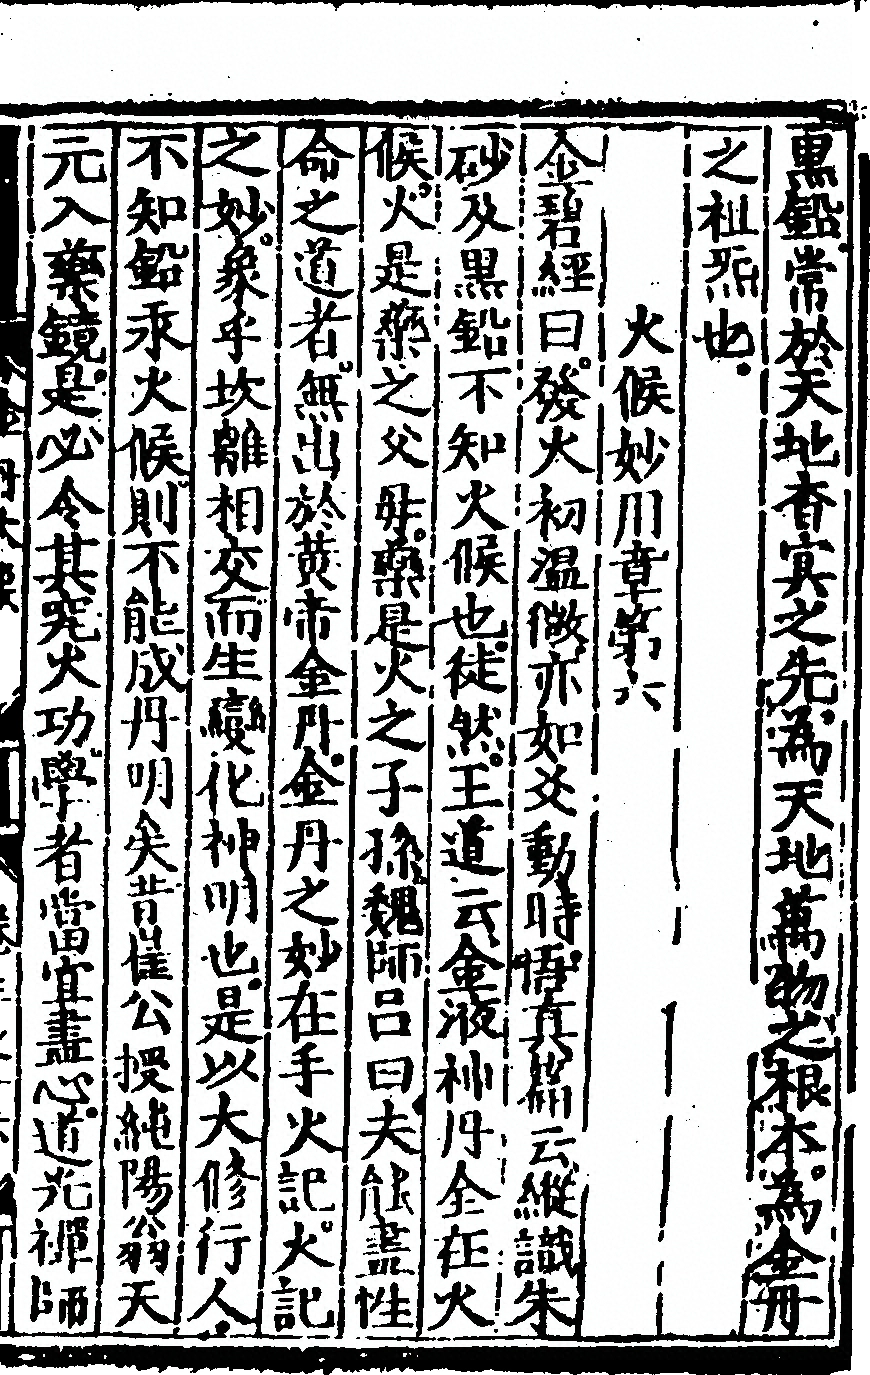 黑鉛常於天地杳寞之先為天地萬物之根本為金丹
之祖炁也
火候妙用章第六
金碧經曰發火初溫微亦如爻動時悟真篇云縱識朱
砂及黑鉛不知火候也徒然王道云金液神丹全在火
候火是藥之父母藥是火之子孫魏師呂曰夫能盡性
命之道者無出於黃帝金丹金丹之妙在乎火記火記
之妙象乎坎離相交而生變化神明也是以大修行人
不知鉛汞火候則不能成丹明矣昔崔公授純陽翁天
元入藥鏡是必令其究火功學者當宜盡心道光禪師